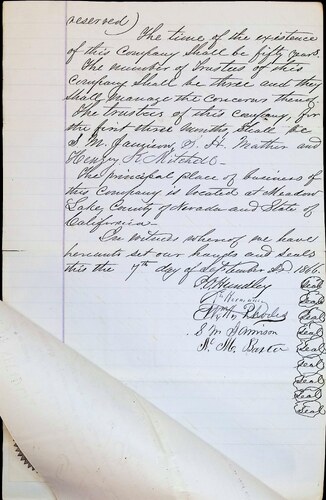 reserved)
The time of the existence
of this Company Shall be fifty years.
The number of Trustees of this
Company Shall be three and they
Shall manage the Concerns thereof
The trustees of this Company, for
the first three months, Shall be
S. M. Jamison, S. H. Mather and
Henry K. Mitchell.
The principal place of business of
this Company is located at Meadow
Lake, County of Nevada and State of
California.
In witness whereof we have
hereunto set our hands and Seals
this the 7th day of September AD. 1866.
Hundley Seal
Seal
Rhodes Seal
S M Jamison Seal
Baxter Seal
Seal
Seal
Seal
Seal